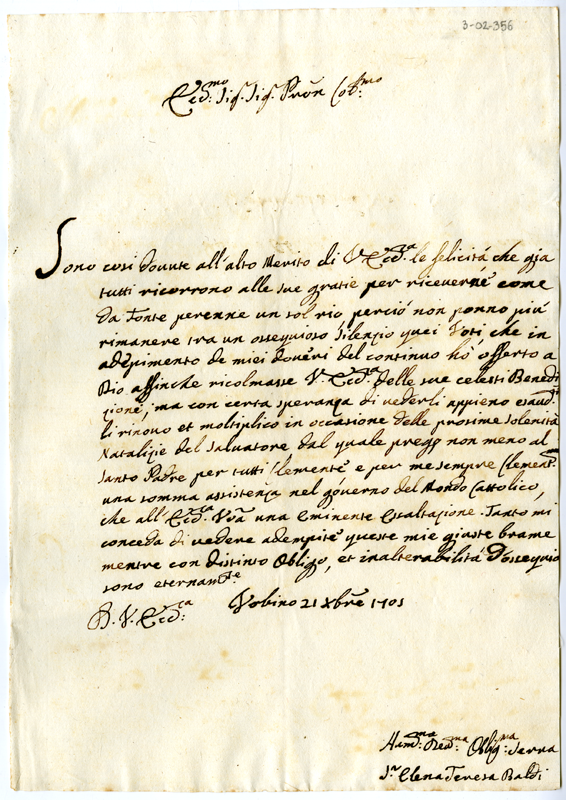 3-02-356
Ecc:mo Sig. Sig. Pron Col:mo
Sono così dovute all'alto Merito di V. Ecc:za le felicità che già
tutti ricorrono alle sue gratie per riceverne come
da fonte perenne un sol rio perciò non ponno più
rimanere tra un ossequioso silenzio quei Voti, che in
adempimento de miei doveri del continuo hò offerto a
Dio affinche ricolmasse V. Ecc:za delle sue celesti Benedi
zioni, ma con certa speranza di vederli appieno esaud:
li rinovo et moltiplico in occasione delle prosime solenità
Natalizie del Salvatore dal quale prego non meno al
Santo Padre per tutti Clemente e per me sempre Clement:
una somma assistenza nel governo del Mondo Cattolico,
che all'Ecc:za Vra una Eminente Essaltazione. Tanto mi
conceda di vedere adempite queste mie giuste brame
mentre con distinto Obligo, et inalterabilità d'ossequio
sono eternam:te
D. V. Ecc:za Vrbino 21 Xbre 1701
Hum:ma Deu:ma Oblig:ma Serua
S.r Elena Teresa Baldi